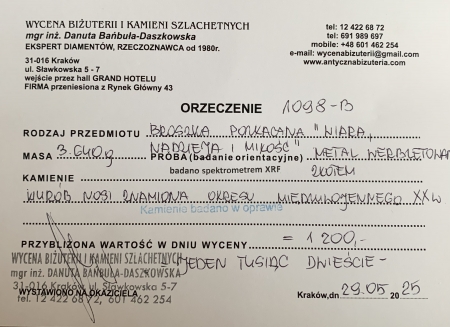 WYCENA BIŻUTERII I KAMIENI SZLACHETNYCH
mgr inż. Danuta Bańbuła-Daszkowska
EKSPERT DIAMENTÓW, RZECZOZNAWCA od 1980r.
31-016 Kraków
ul. Sławkowska 5 - 7
wejście przez hall GRAND HOTELU
FIRMA przeniesiona z Rynek Główny 43
tel: 12 422 68 72
tel: 691 989 697
mobile: +48 601 462 254
e-mail: wycenabizuterii@gmail.com
www.antycznabizuteria.com
ORZECZENIE 1098-B
RODZAJ PRZEDMIOTU BROSZKA POZŁACANA "WIARA,
NADZIEJA I MIŁOŚĆ"
MASA 3.640g PRÓBA (badanie orientacyjne) METAL
badano spektrometrem XRF ZŁOTEM
KAMIENIE
WYRÓB NOSI ZNAMIONA OKRESU MIĘDZYWOJENNEGO XXw
Kamienie badano w oprawie
PRZYBLIŻONA WARTOŚĆ W DNIU WYCENY = 1200,-
-JEDEN TYSIĄC DWIEŚCIE-
WYCENA BIŻUTERII I KAMIENI SZLACHETNYCH
mgr inż. DANUTA BAŃBUŁA-DASZKOWSKA
31-016 Kraków, ul. Sławkowska 5-7
tel. 12 422 68 72, 601 462 254
WYSTAWIONO NA OKAZICIELA
Kraków, 29.05 2025